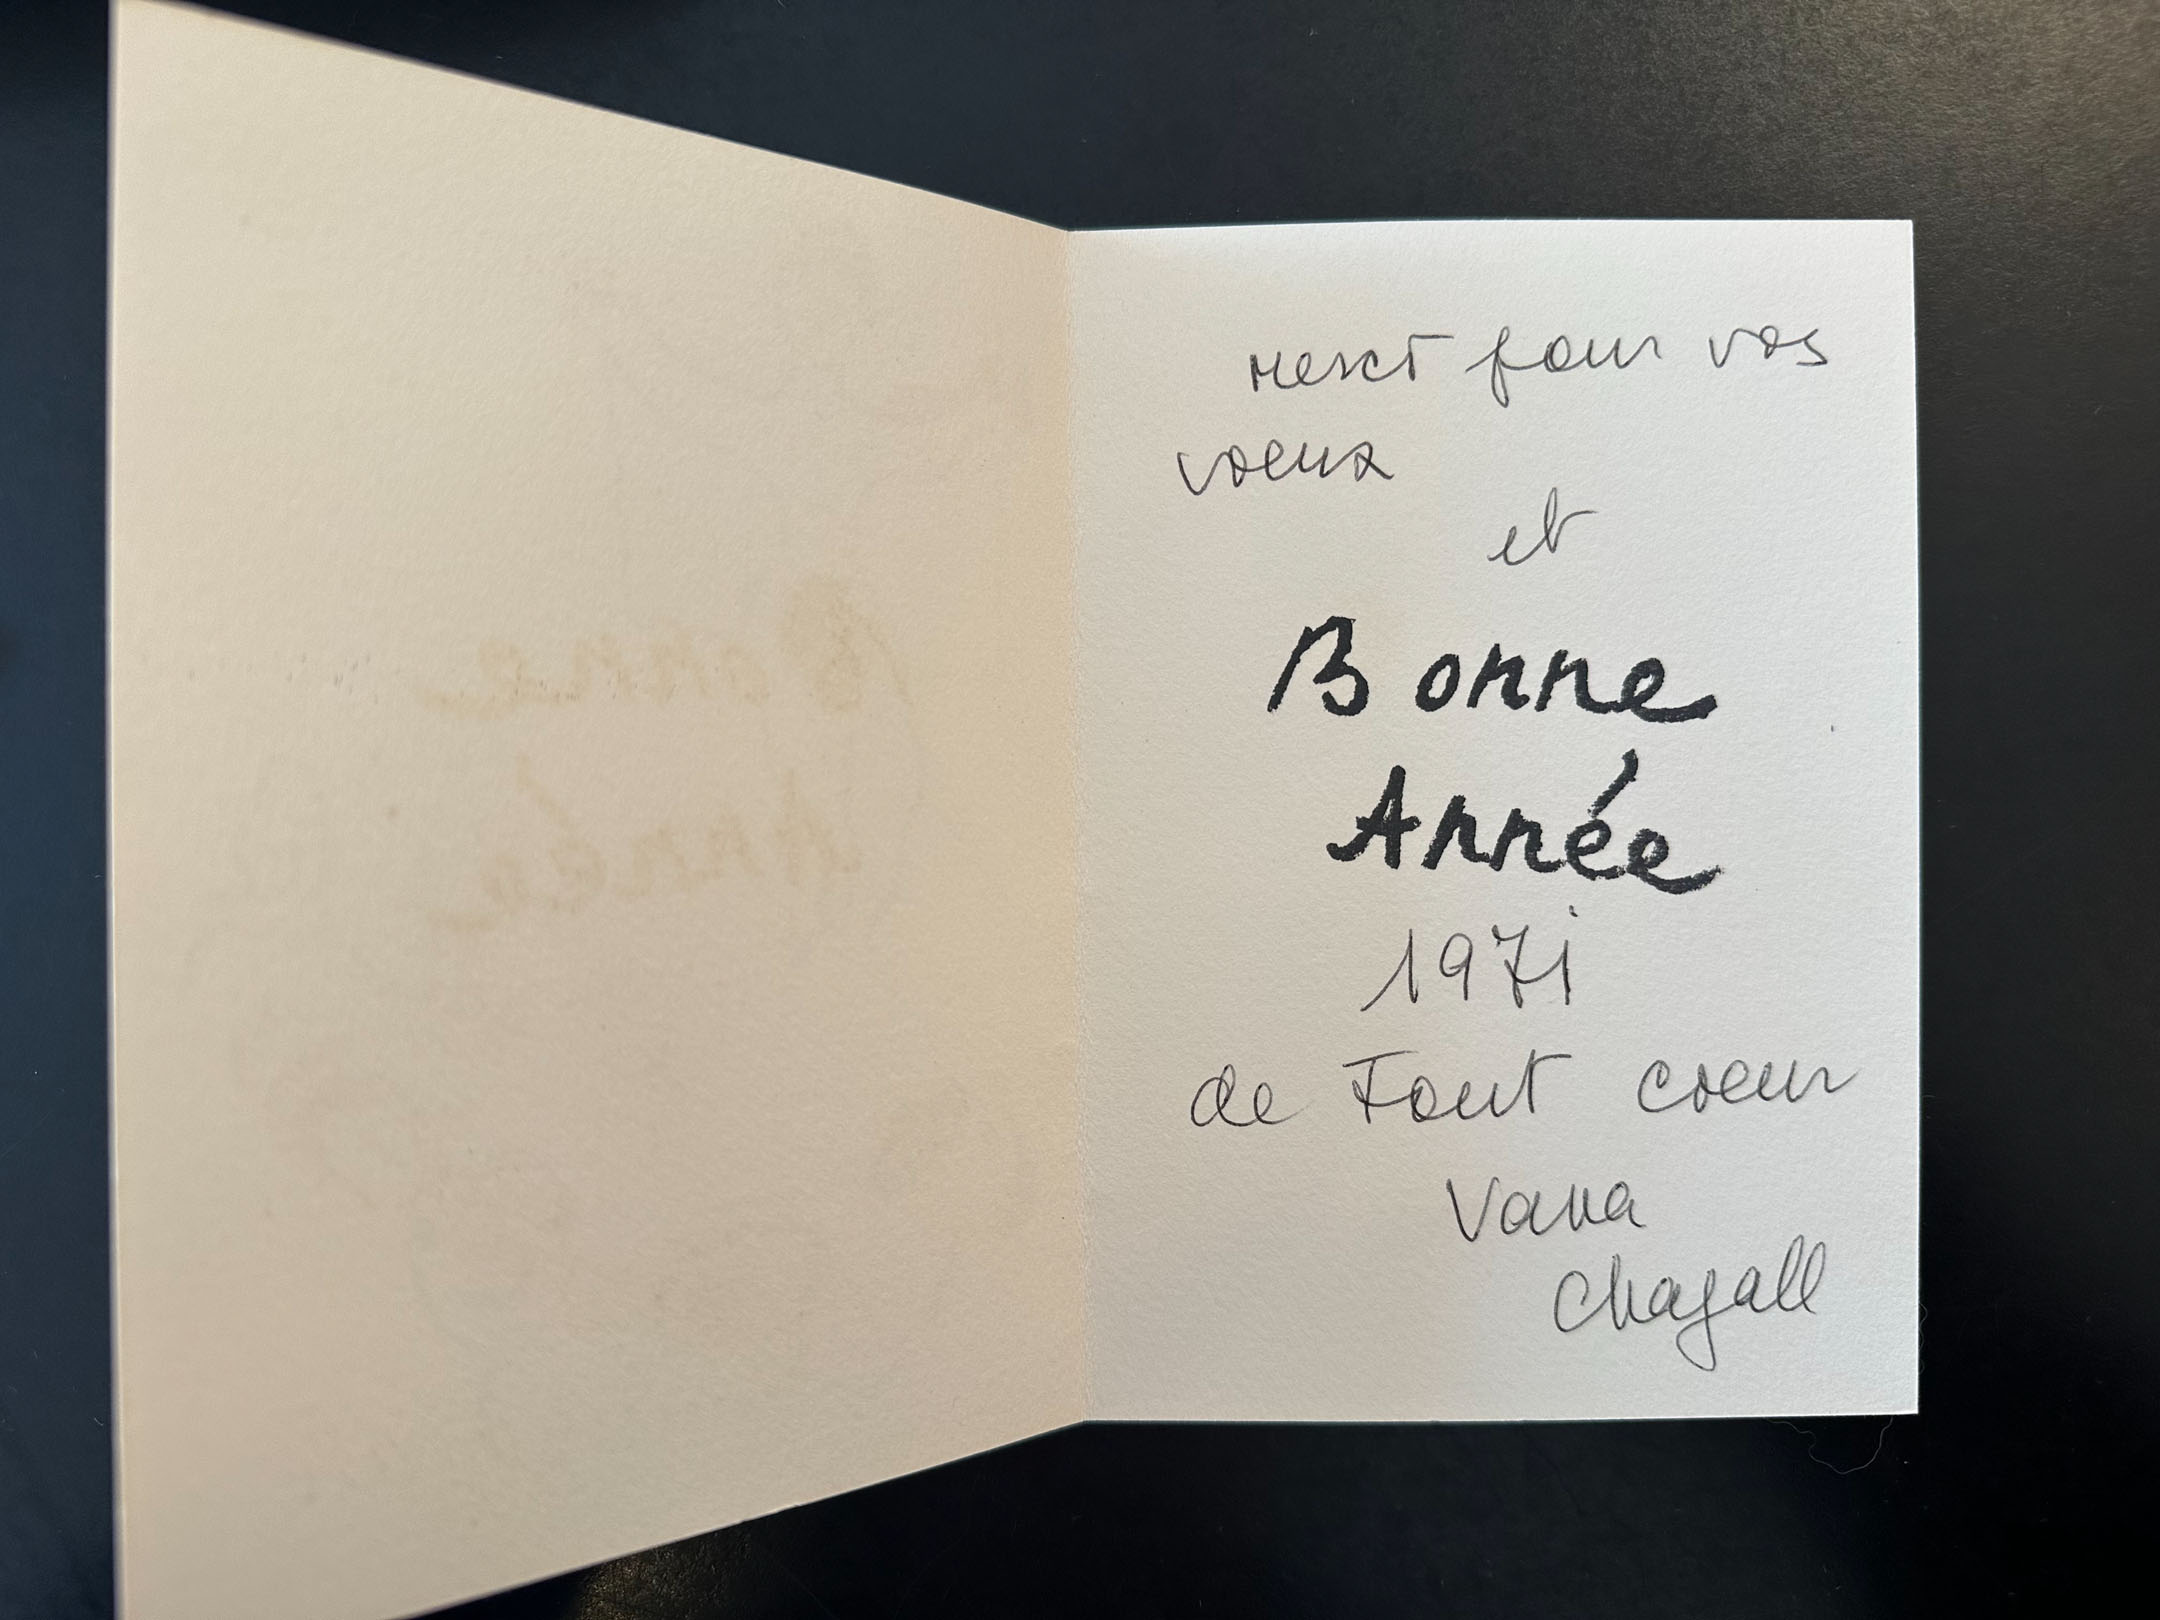 merci pour vos
voeux
et
Bonne
Année
1971
de Tout coeur
Vava
Chagall